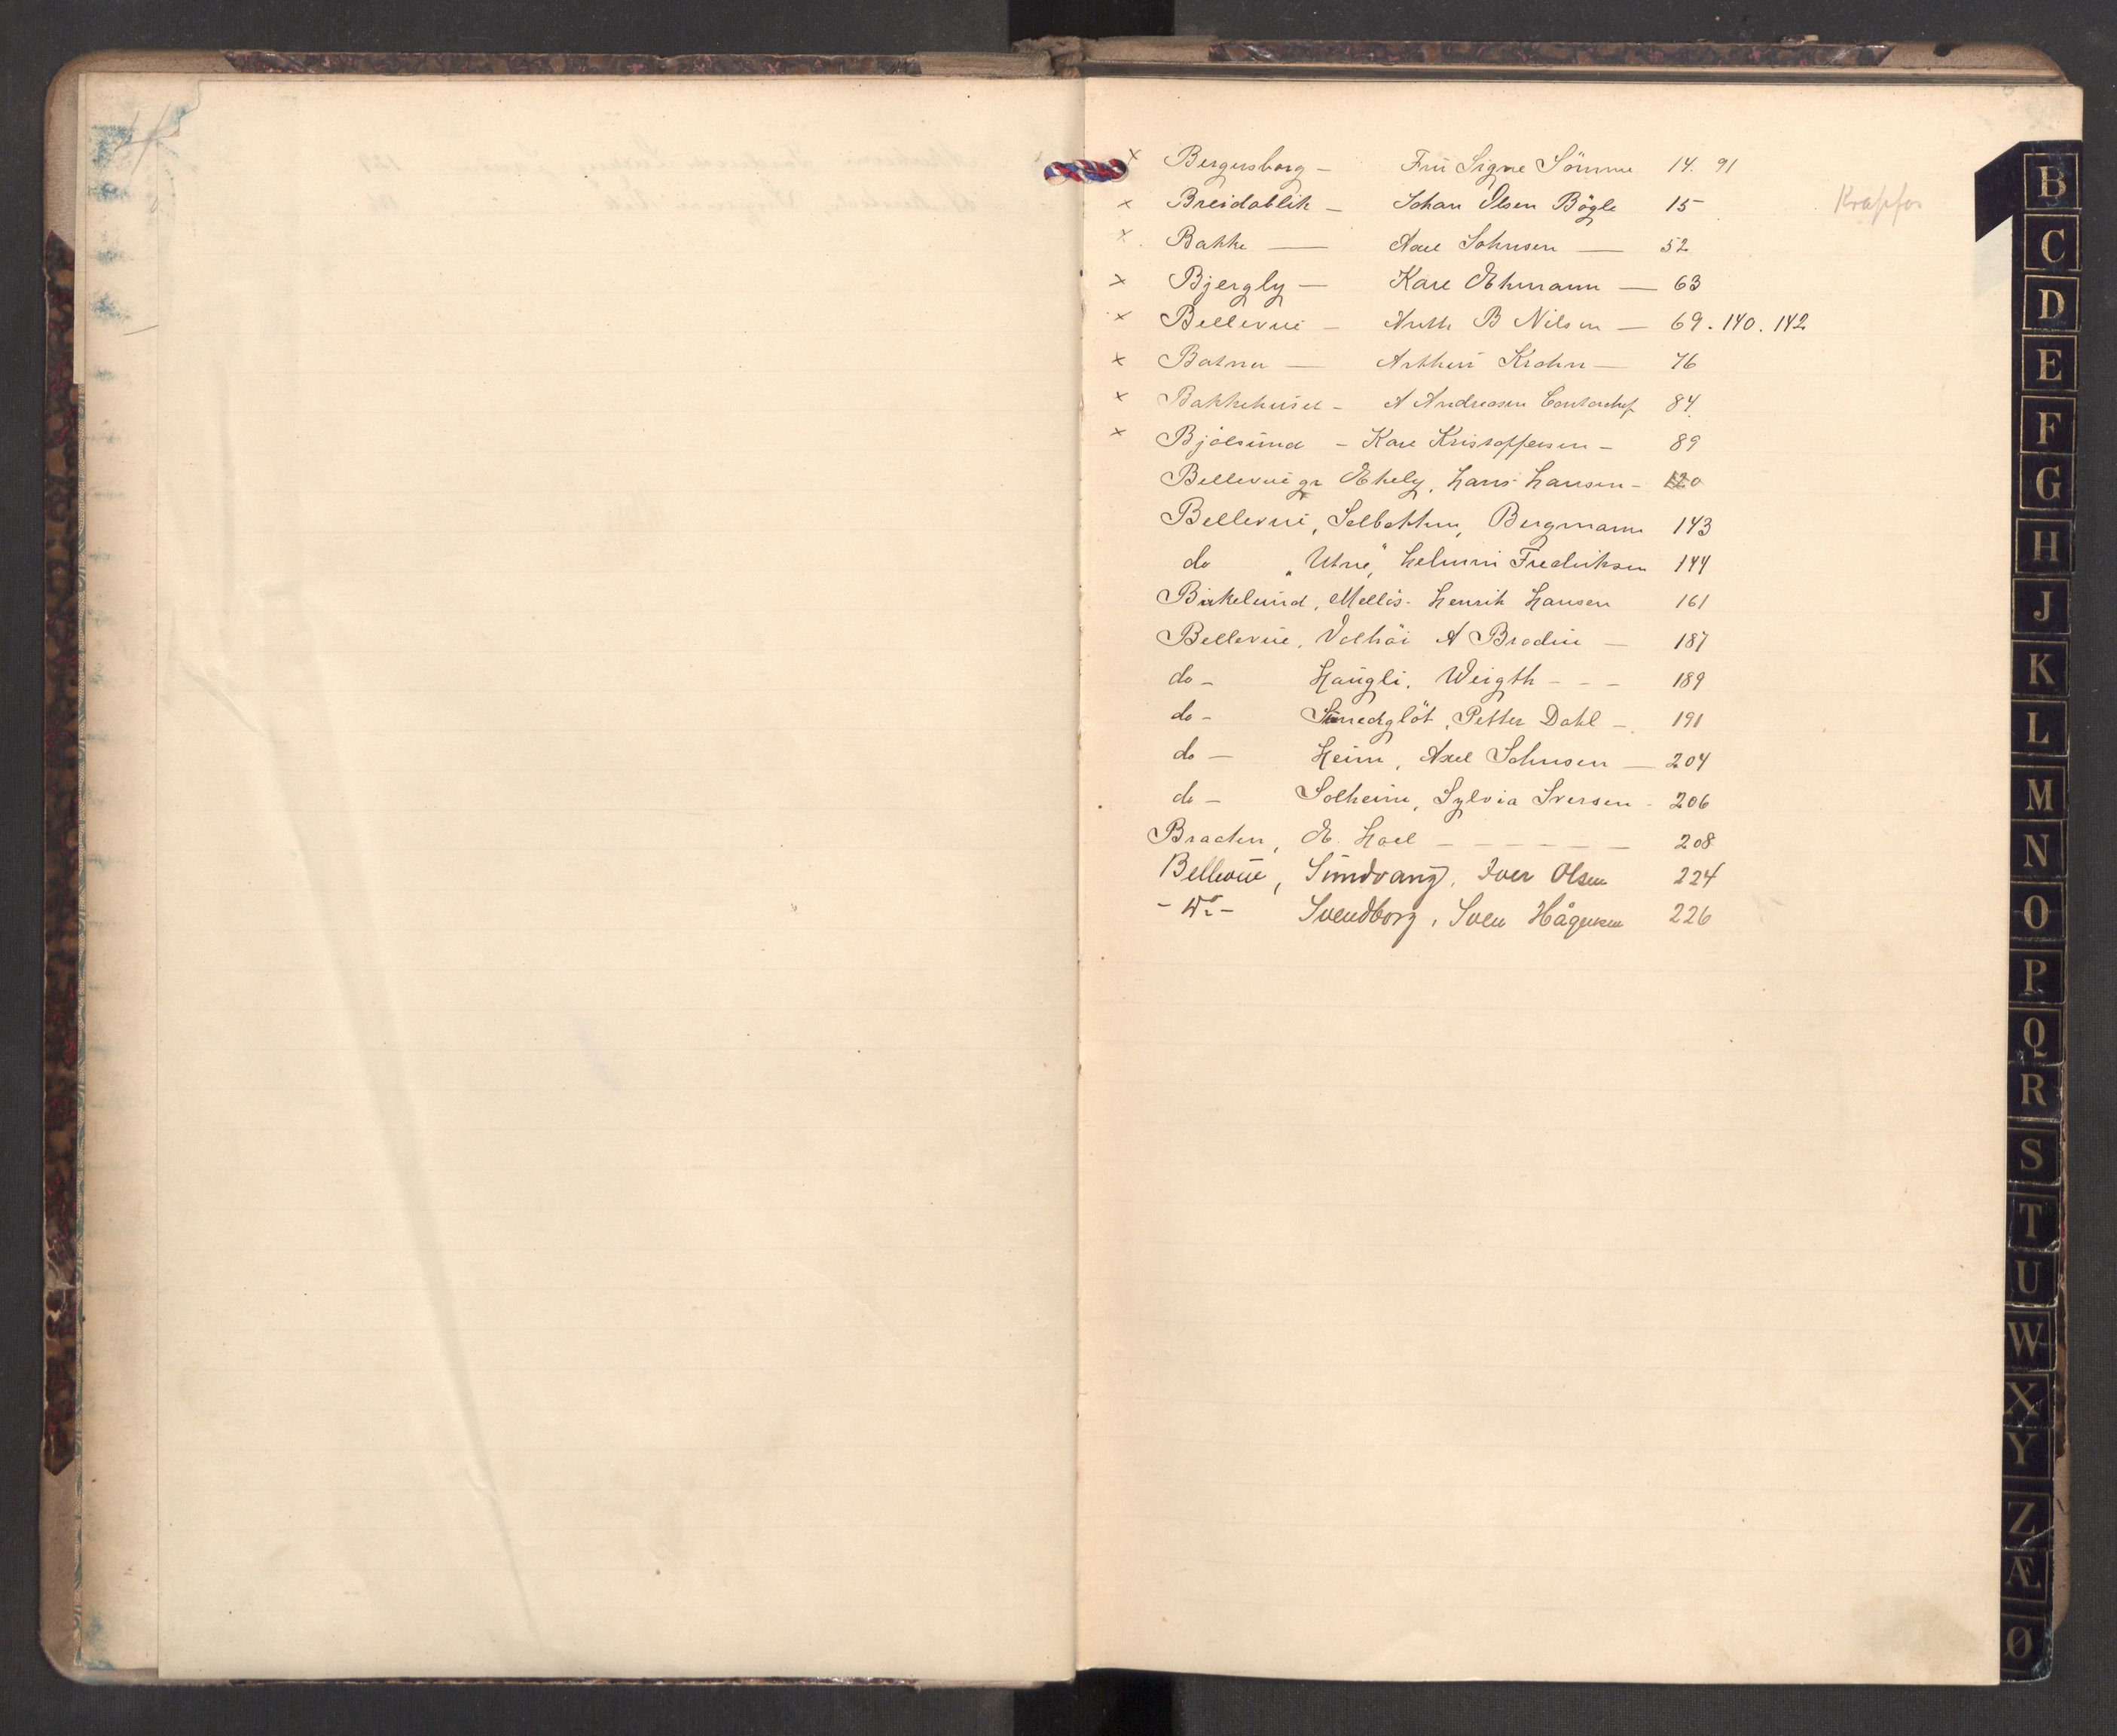 × Bergersborg – Frü Signe Sömme 14. 91
× Breidablik – Johan Olsen Bögle 15
Krapfos
× Bakke — Axel Johnsen — 52
× Bjergly — Karl Ekmann — 63
× Bellevüe – Anth B Nilsen — 69. 140. 142
× Arthür Krohn — 76
× Bakkehuset – A Andreasen Contorchef 84
× Bjölsünd – Karl Kristoffersen – 89
Bellevüe gr Ekely, Hans Hansen –
Bellevüe, Solbakken, Bergmann 143
do "Utne", Helmin Fredriksen 144
Birkelünd, Mellös. Henrik Hansen 161
Bellevüe, Volhöi A Brodin — 187
do – Haügli. Weigth – – – 189
do – Petter Dahl – 191
do — Heim, Axel Johnsen — 204
do – Solheim, Sylvia Iversen – 206
Braaten, E. Hoel – – – – – – 208
Bellevüe, Sündvang, Iver Olsen 224
– Do – Svendborg, Sven Hågensen 226
B
C
D
E
F
G
H
J
K
L
M
N
O
P
Q
R
S
T
U
W
X
Y
Z
Æ
Ø